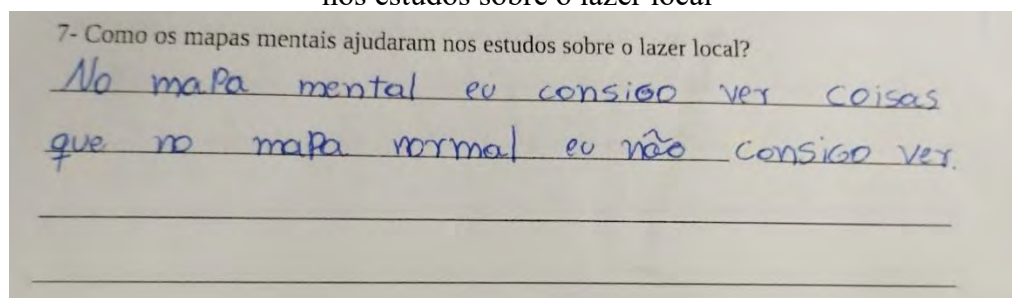 nos estudos sobre o lazer local
7- Como os mapas mentais ajudaram nos estudos sobre o lazer local?
No mapa mental eu consigo ver coisas
que no mapa normal eu não consigo ver.